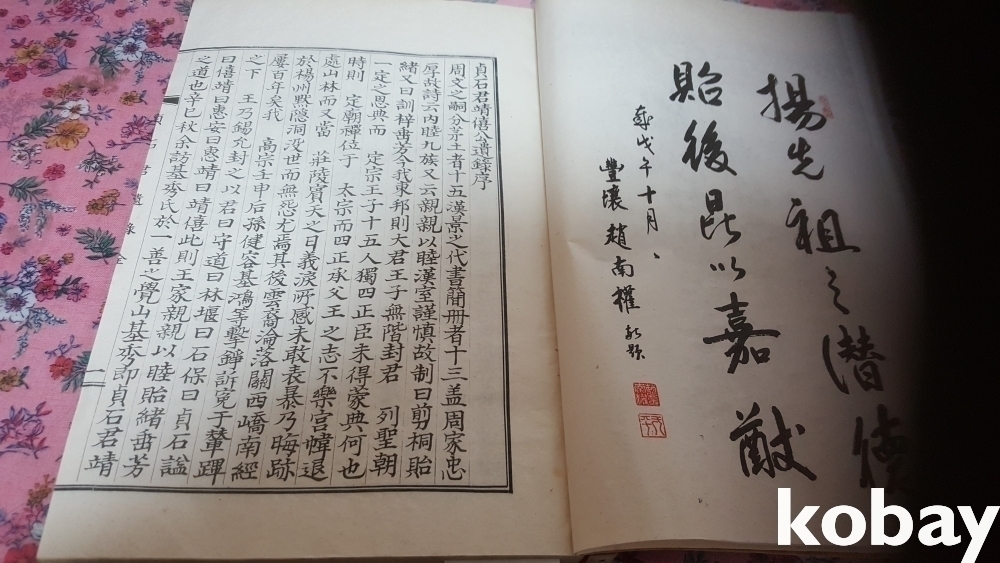 揚先祖之潛德
貽後昆以嘉猷
歲戊午十月、
豐壤趙南權敬題
貞石君靖僖公遺錄序
周文之嗣分茅土者十五漢景之代書簡冊者十三盖周家忠
厚故詩云內睦九族又云親親以睦漢室謹慎故制曰剪桐貽
緒又曰訓梓垂芳今我東邦則大君王子無階封君 列聖朝
一定之恩典而 定宗王子十五人獨四正臣未得蒙典何也
時則 定廟禪位于 太宗而四正承父王之志不樂宮幃退
處山林而又當 莊陵賓天之日義淚所感未敢表暴乃晦跡
於楊州默隱洞沒世而無怨尤焉其後雲裔淪落關西嶠南經
屢百年矣我 高宗壬申后孫健容基鴻等擊錚訴寃于輦蹕
之下 王乃錫允封之以君曰守道曰林堰曰石保曰貞石諡
曰僖靖曰惠安曰惠靖曰靖僖此則王家親親以睦貽緒垂芳
之道也辛巳秋余訪基秀氏於一善之覺山基秀即貞石君靖
貞石君遺錄全
一
kobay